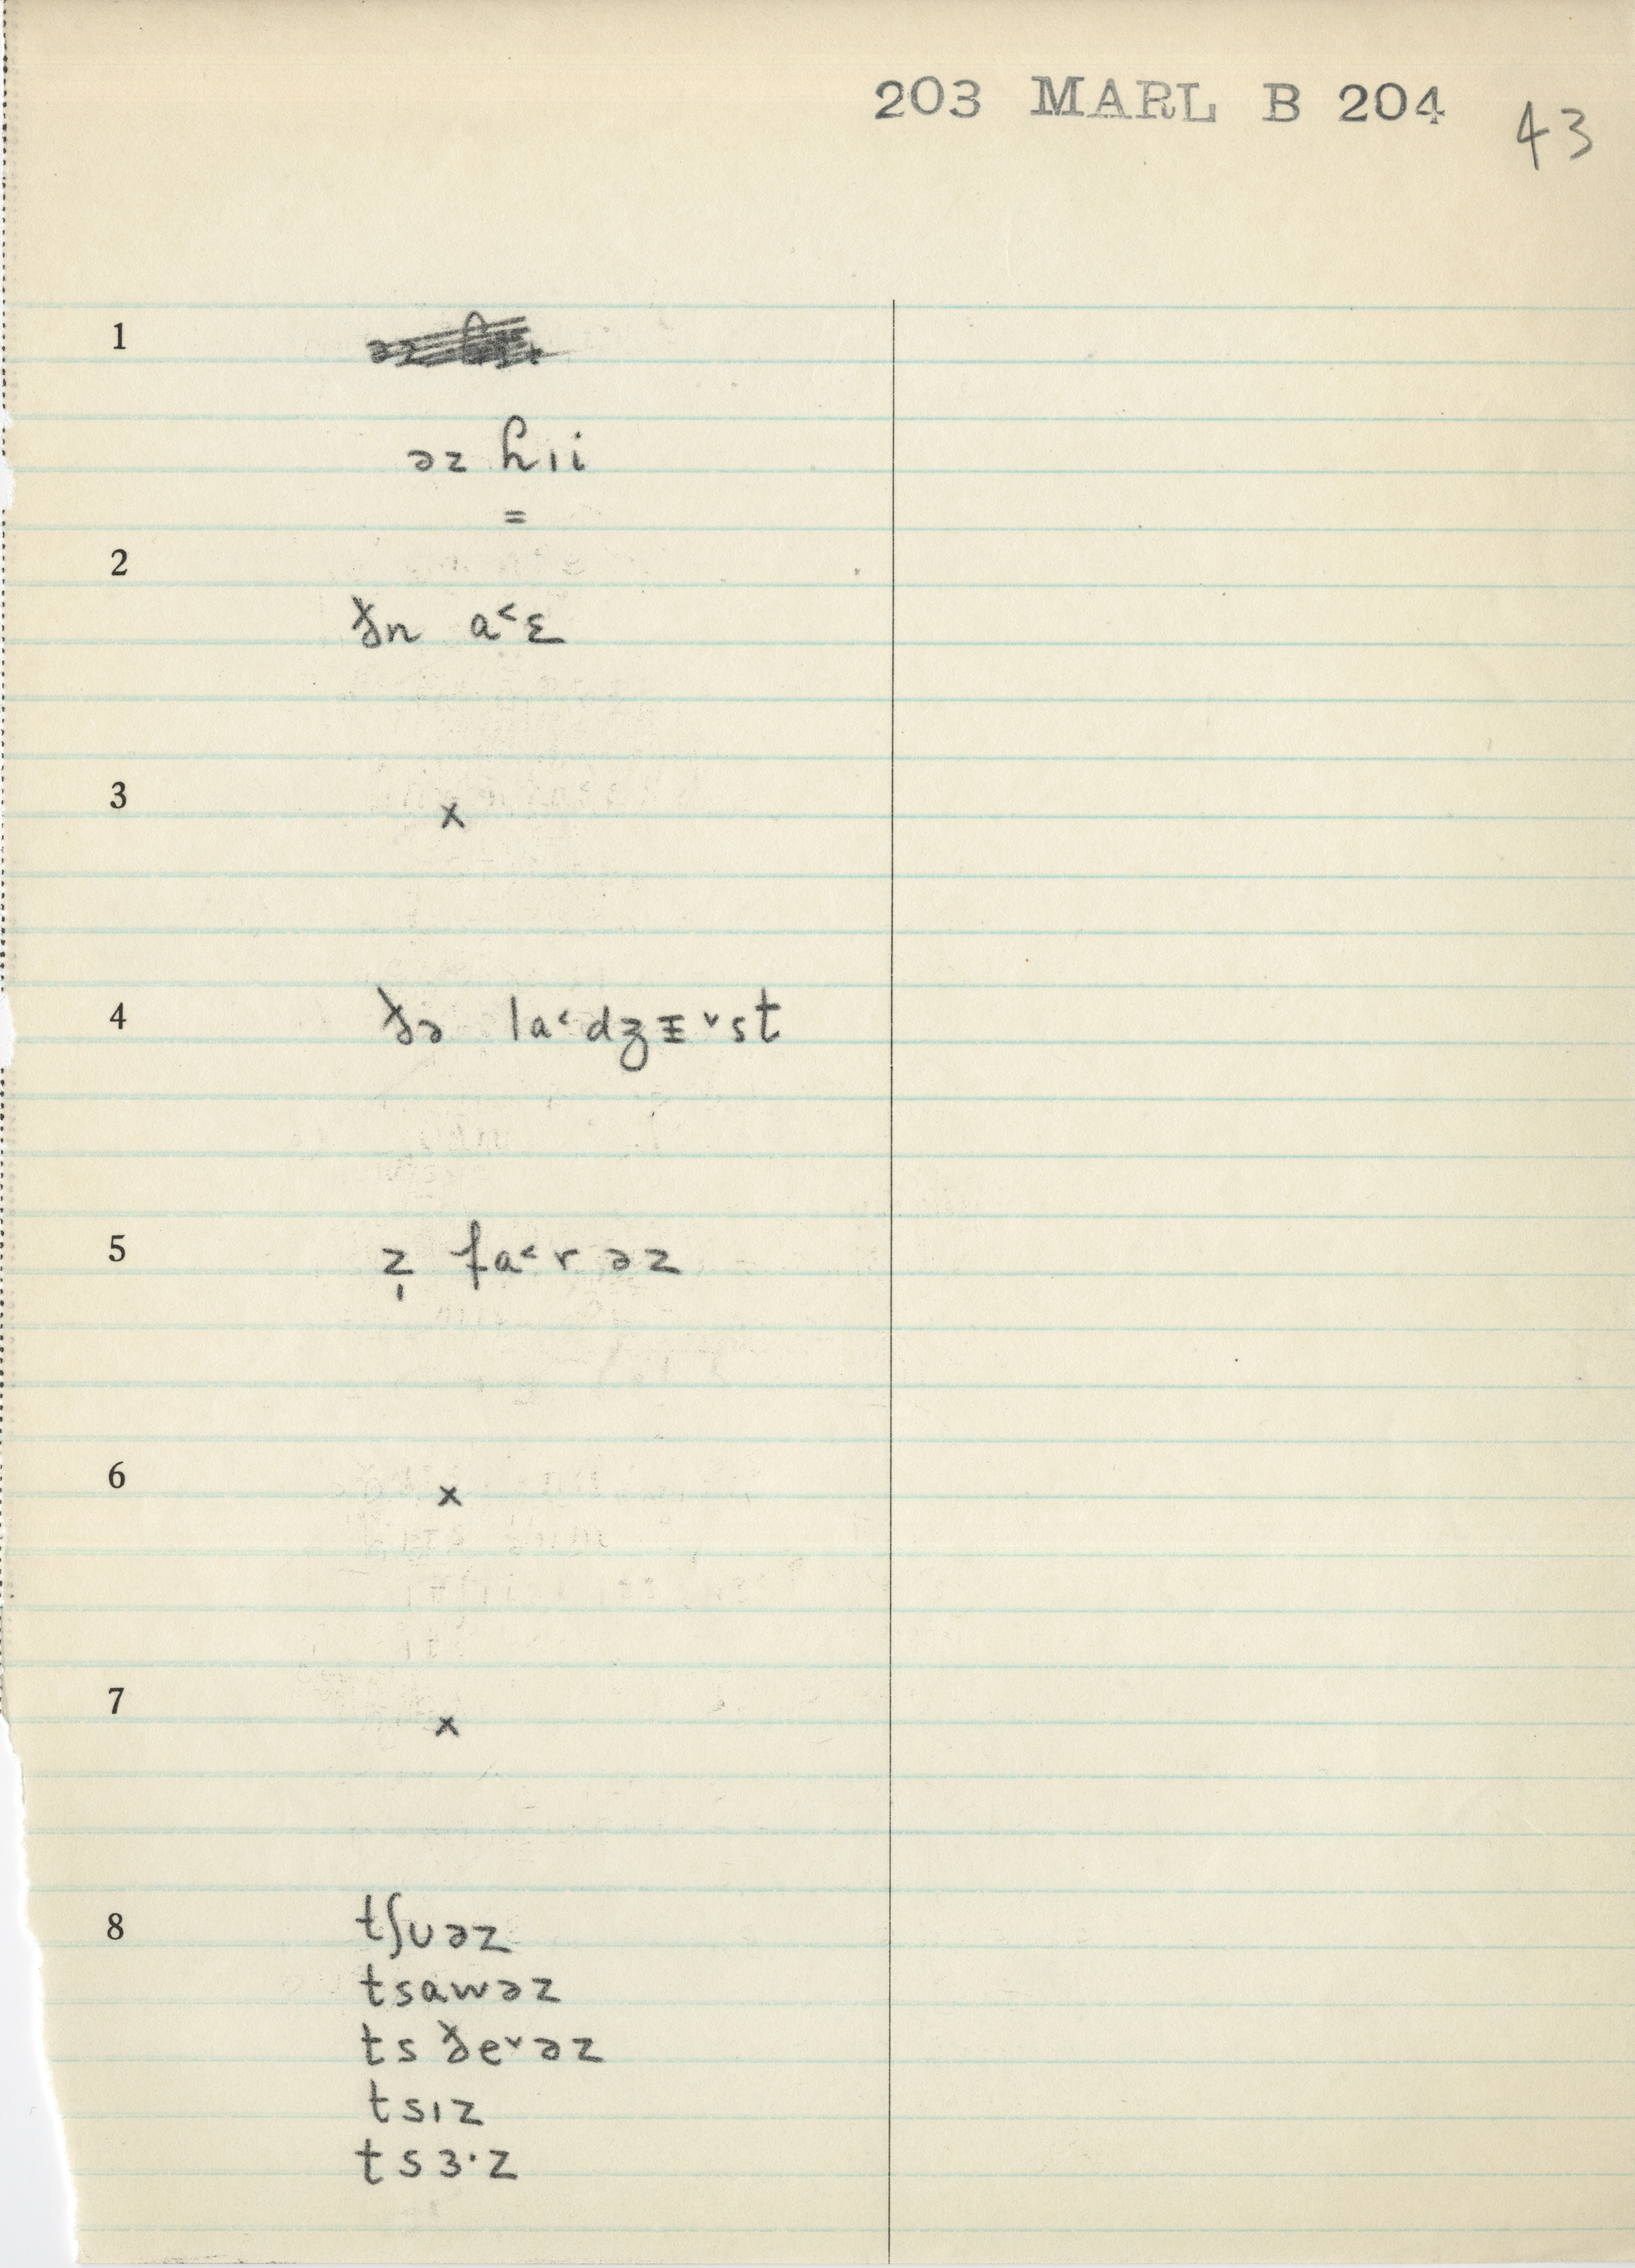 203 MARL B 204 43
1
əz ɦıi
=
2
ð̵n a˂ɛ
3
x
4
ð̵ə la˂dʒɪ̵˅st
5
z̩ fa˂r əz
6
x
7
x
8
tʃʊəz
tsawəz
ts ð̵e˅əz
tsız
tsɜ·z